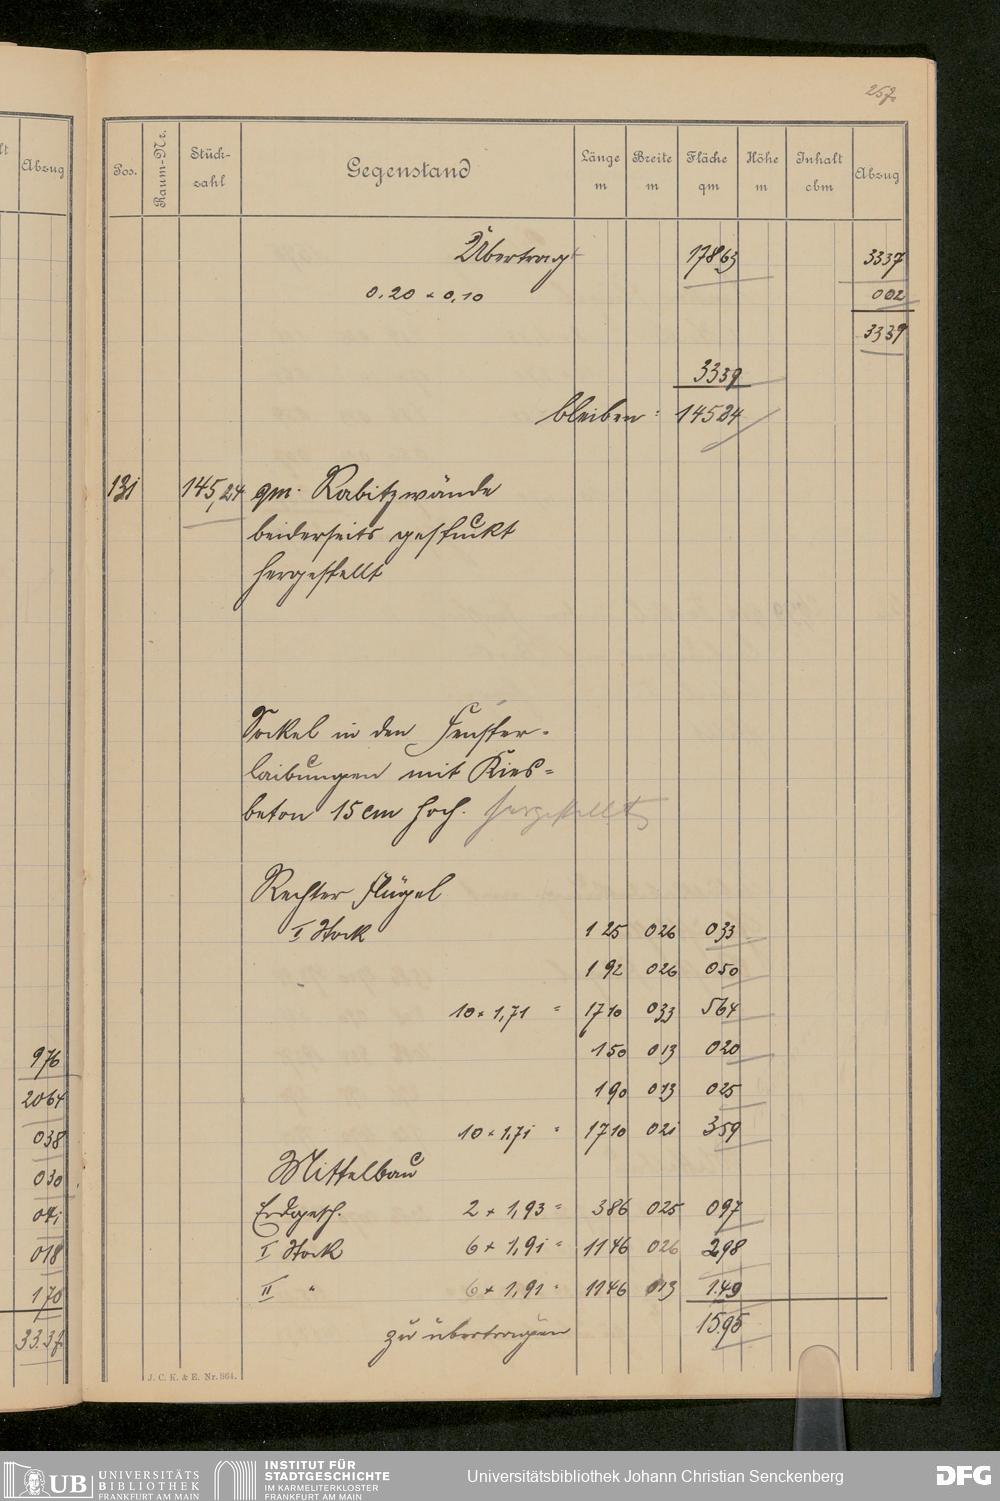 257.
lt
Abzug
Pos.
Raum-Nr.
Stück-
zahl
Gegenstand
Länge
m
Breite
m
Fläche
qm
Höhe
m
Inhalt
cbm
Abzug
Übertrag 17863 3337
0,20 × 0,10 002
3339
3339
bleiben: 14524
131 145,24 qm. Rabitzwände
beiderseits gestuckt
hergestellt
Sockel in den Fenster-
laibungen mit Kies-
beton 15 cm hoch. hergestellt
Rechter Flügel
I Stock 125 026 033
192 026 050
10 × 1,71 = 1710 033 564
150 013 020
190 013 025
10 × 1,71 = 1710 021 359
Mittelbau
Erdgesch. 2 × 1,93 = 386 025 097
I Stock 6 × 1,91 = 1146 026 298
II " 6 × 1,91 = 1146 013 149
zu übertragen 1595
976
2064
038
030
041
018
170
3337
J. C. K. & E. Nr. 864.
UB UNIVERSITÄTS
BIBLIOTHEK
FRANKFURT AM MAIN
INSTITUT FÜR
STADTGESCHICHTE
IM KARMELITERKLOSTER
FRANKFURT AM MAIN
Universitätsbibliothek Johann Christian Senckenberg
DFG